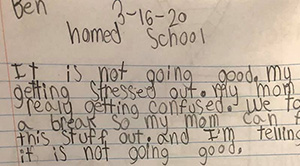 Ben 3-16-20
homed School
It is not going good. my
getting stressed out. My mom
realy getting confused. We to
a break so my mom can f
this stuff out. and I'm
it is not going good.